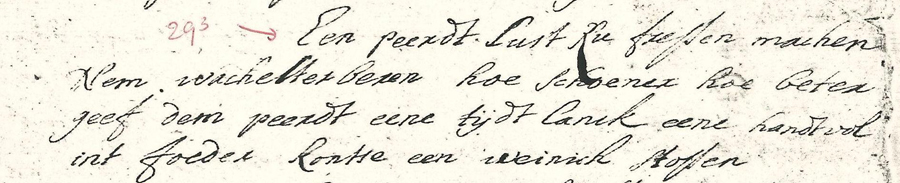 293 → Een peerdt lust zu fressen machen
Nem wachelterberen hoe schoener hoe beter
geef dem peerdt eene tijdt lanck eene handtvol
int foeder kontse een weinich stossen